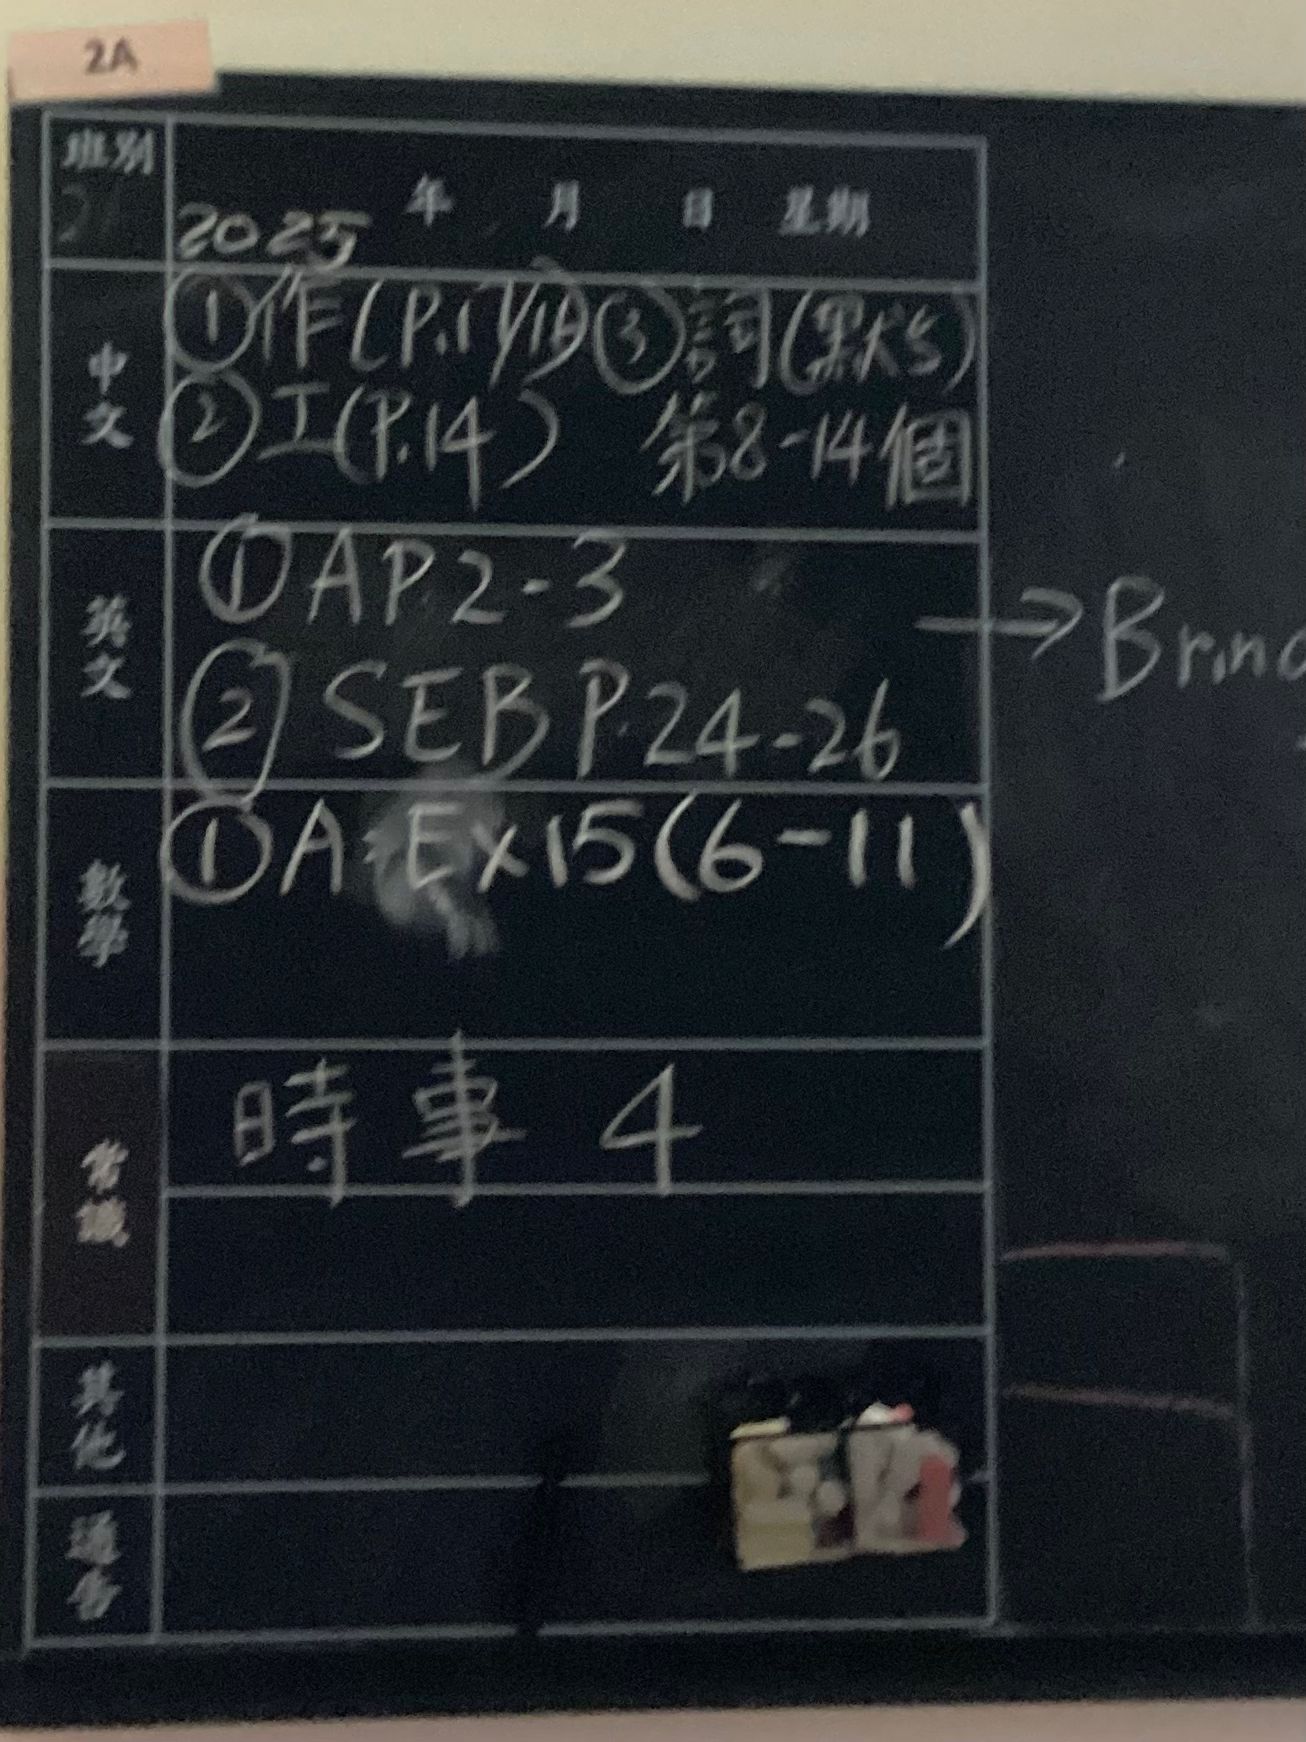 2A
班別
年 月 日 星期
2025
中文
①作(P.17/18)③詞(默書)
②工(P.14) 第8-14個
英文
①AP.2-3
→Bring
②SEB P.24-26
數學
①A.Ex15(6-11)
常識
時事 4
其他
通告